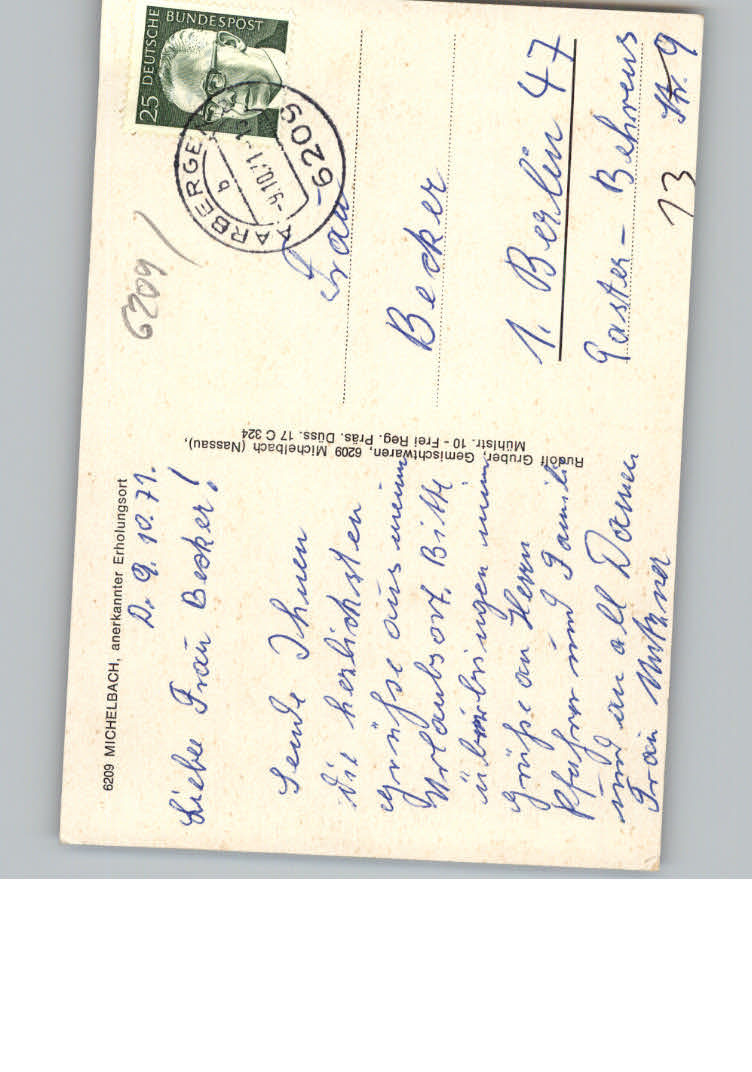 6209 MICHELBACH, anerkannter Erholungsort
D. 9. 10. 71.
Liebe Frau Becker!
Sende Ihnen
die herlichsten
grüße aus meinem
Urlaubsort. Bitte
überbringen meine
grüße an Herrn
Pfahrer und Familie
und an all Damen
Frau
Rudolf Gruber, Gemischtwaren, 6209 Michelbach (Nassau),
Mühlstr. 10 - Frei Reg. Präs. Düss. 17 C 324
DEUTSCHE BUNDESPOST
25
AARBERGEN
6209
b
-9.10.71-1
6209
Frau
Becker
1. Berlin 47
Paster-Behrens
Str. 9
13